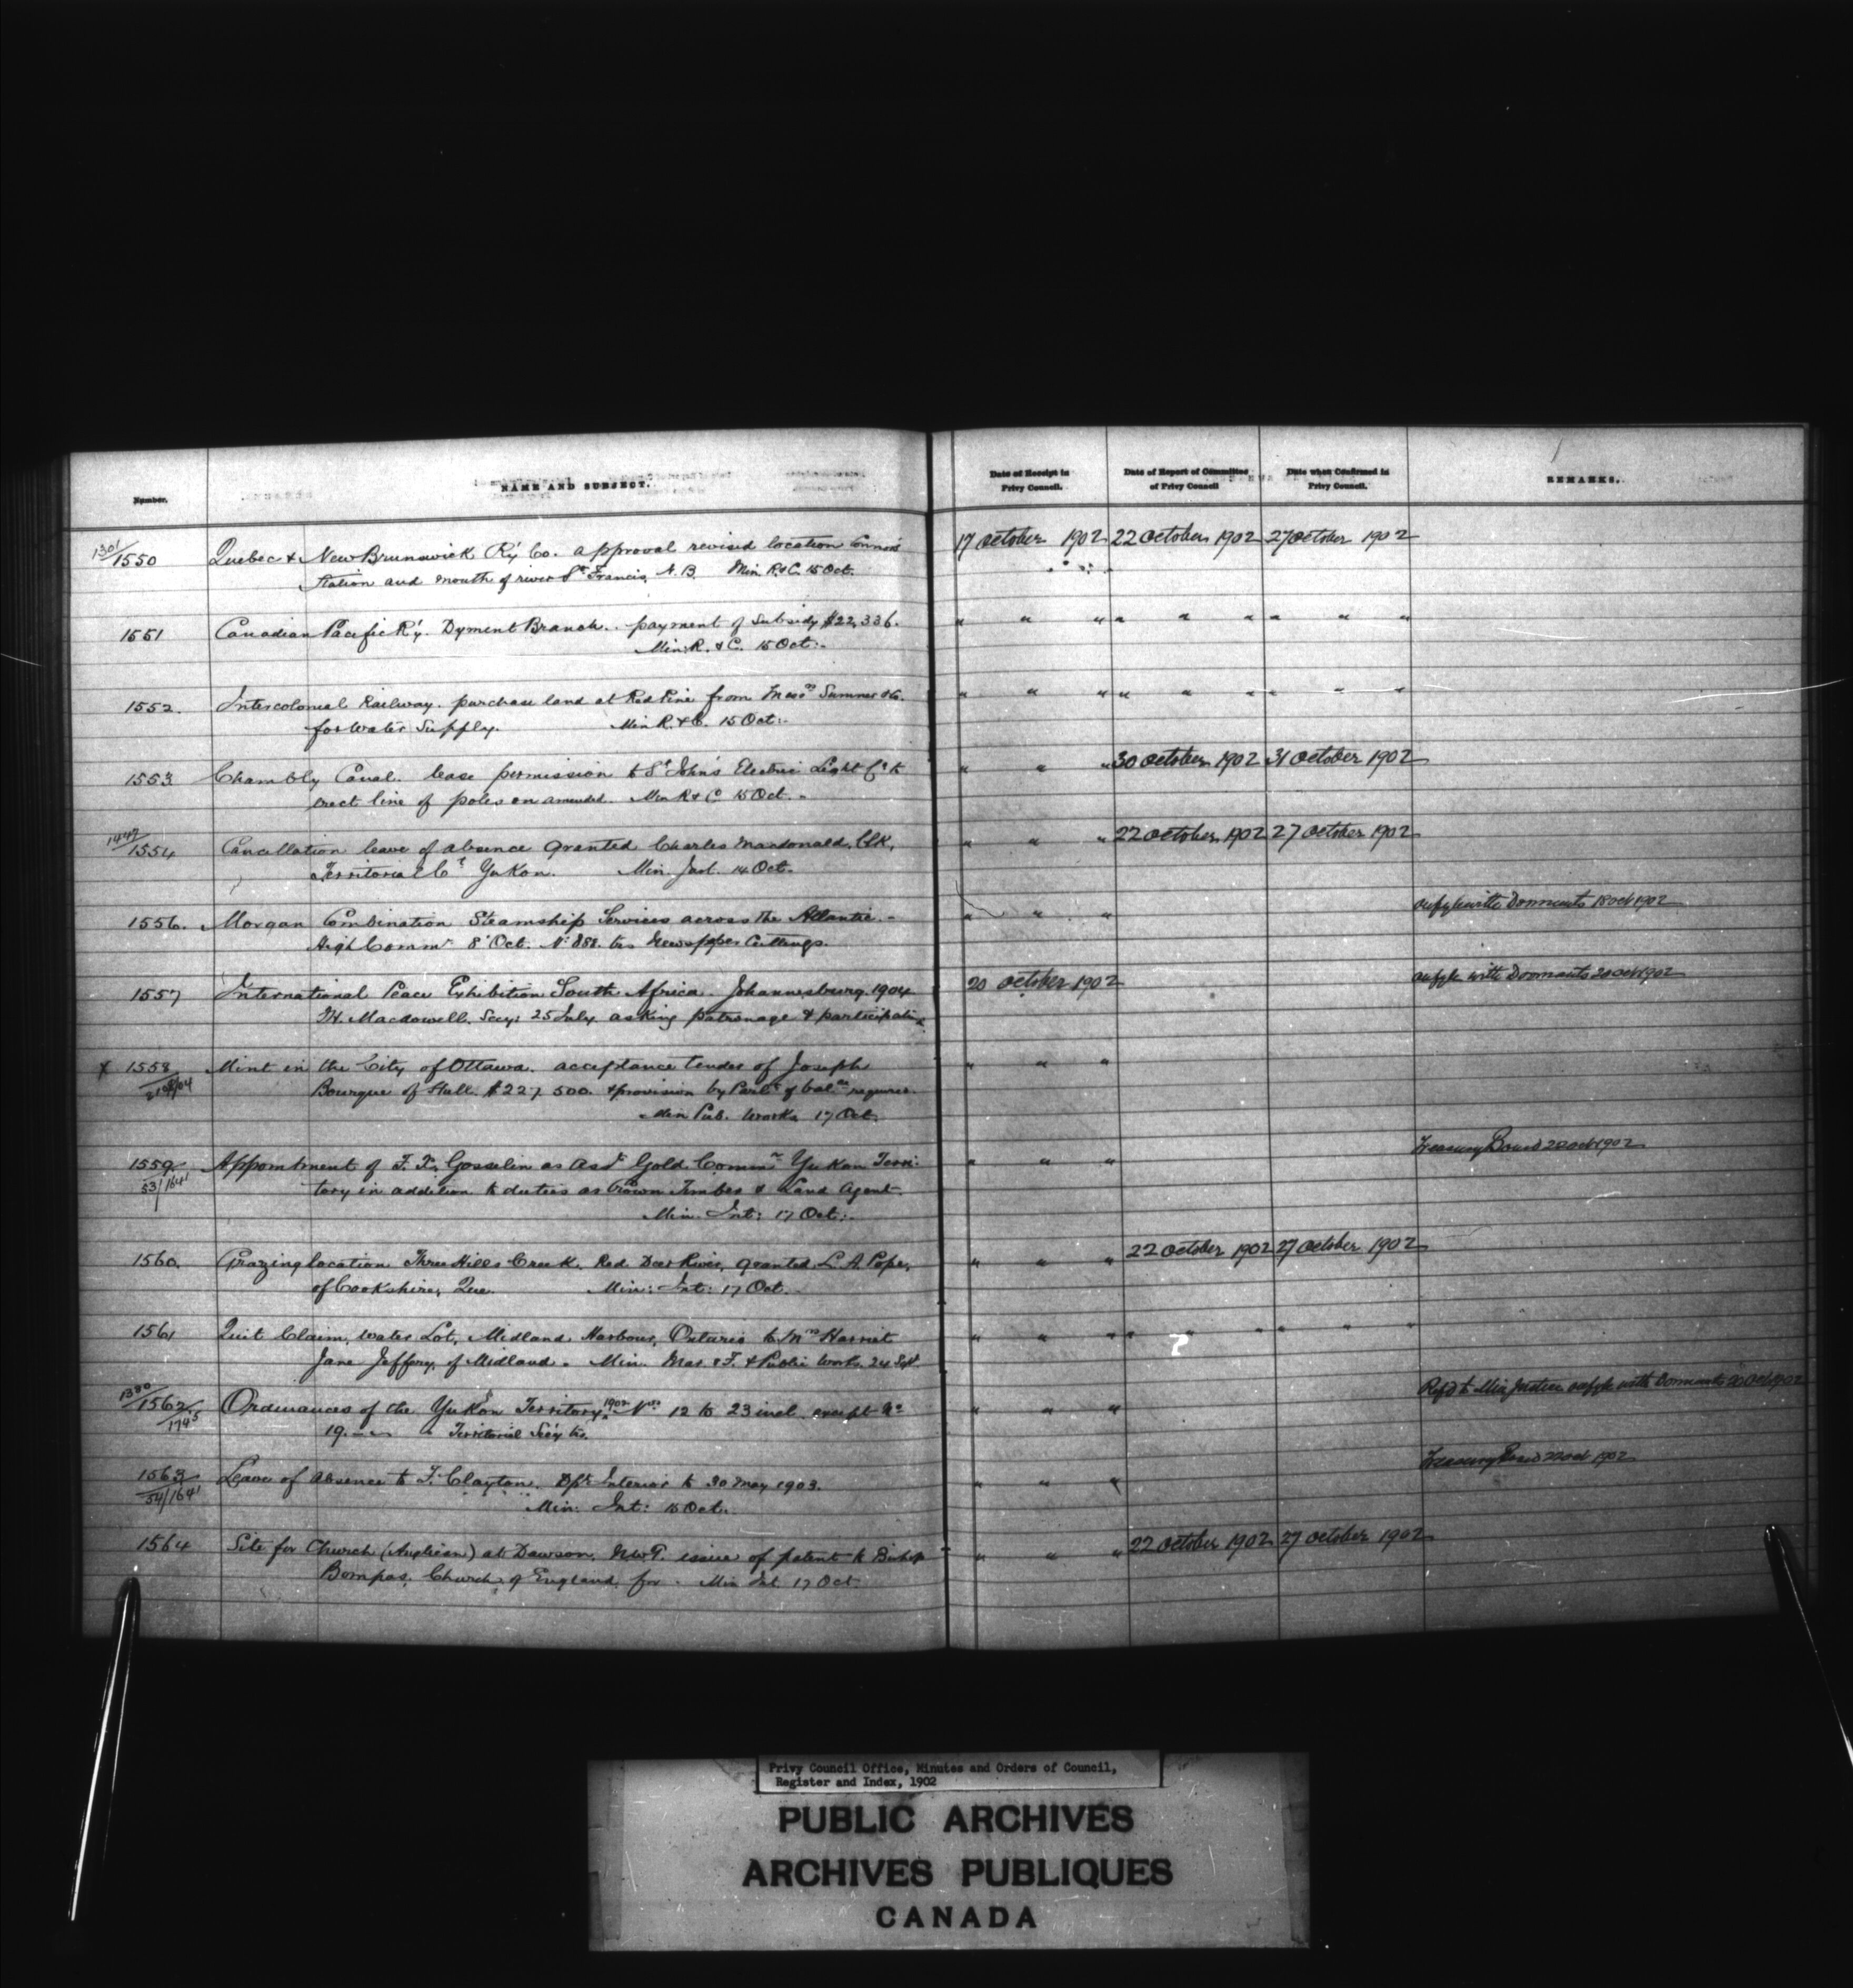 Number.
NAME AND SUBJECT.
Date of Receipt in Privy Council.
Date of Report of Committee of Privy Council
Date when Confirmed in Privy Council.
REMARKS.
1301/1550 Quebec & New Brunswick Ry Co. approval revised location Connors 17 October 1902 22 October 1902 27 October 1902
Station and mouth of river St Francis, N.B. Min. R & C. 15 Oct.
1551 Canadian Pacific Ry. Dyment Branch. payment of Subsidy $22,336. " " " " " " " " "
Min: R. & C. 15 Oct:-
1552. Intercolonial Railway. purchase land at Red Pine from Messrs Sumner & Co. " " " " " " " " "
for Water Supply. Min R. & C. 15 Oct:-
1553 Chambly Canal. lease permission to St John's Electric Light Co to " " " 30 October 1902 31 October 1902
erect line of poles on amended. Min R & C 15 Oct. -
1447/1554 Cancellation leave of absence granted Charles Macdonald, Clk, " " " 22 October 1902 27 October 1902
Territorial Ct Yukon. Min. Just. 14 Oct.
1556. Morgan Combination Steamship Services across the Atlantic. - " " " with Dormants 18 Oct 1902
High Commr 8 Oct. No 858. trs Newspaper Cuttings.
1557 International Peace Exhibition South Africa. Johannesburg. 1904 20 October 1902 with Dormants 20 Oct 1902
Macdowell. Secy: 25 July. asking patronage & participation
x 1558 Mint in the City of Ottawa. acceptance tender of Joseph " " "
Bourque of Hull. $227,500. & provision by Parlt of balce required.
Min Pub. Works 17 Oct.
1559 Appointment of F. X. Gosselin as Asst Gold Commr Yukon Terri- " " " Treasury Board 22 Oct 1902
53/1641 tory in addition to duties as Crown Timber & Land Agent.
Min. Int: 17 Oct:-
1560. Grazing location Three Hills Creek, Red Deer River, granted L. A. Pope, " " " 22 October 1902 27 October 1902
of Cookshire, Que. Min: Int: 17 Oct.
1561 Quit Claim, Water Lot, Midland Harbour, Ontario to Mrs Harriet " " " " " " " " "
Jane Jeffery, of Midland. Min. Mar & F. & Public Works. 24 Sept.
1380/1562 Ordinances of the Yukon Territory, 1902 Nos 12 to 23 incl. except No " " " Refd to Min Justice with Dormants 20 Oct 1902
1745 19. - Territorial Secy trs.
1563 Leave of absence to F. Clayton. Dpt Interior to 30 May 1903. " " " Treasury Board 22 Oct 1902
54/1641 Min: Int: 15 Oct.
1564 Site for Church (Anglican) at Dawson, N.W.T. issue of patent to Bishop " " " 22 October 1902 27 October 1902
Bompas, Church of England for. Min Int. 17 Oct.
Privy Council Office, Minutes and Orders of Council,
Register and Index, 1902
PUBLIC ARCHIVES
ARCHIVES PUBLIQUES
CANADA